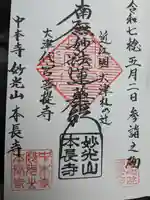 令和七稔五月二日参詣之砌
近江國大津杜の辻
南無妙法蓮華経
大津代官菩提寺
妙光山
本長寺
中本寺妙光山本長寺